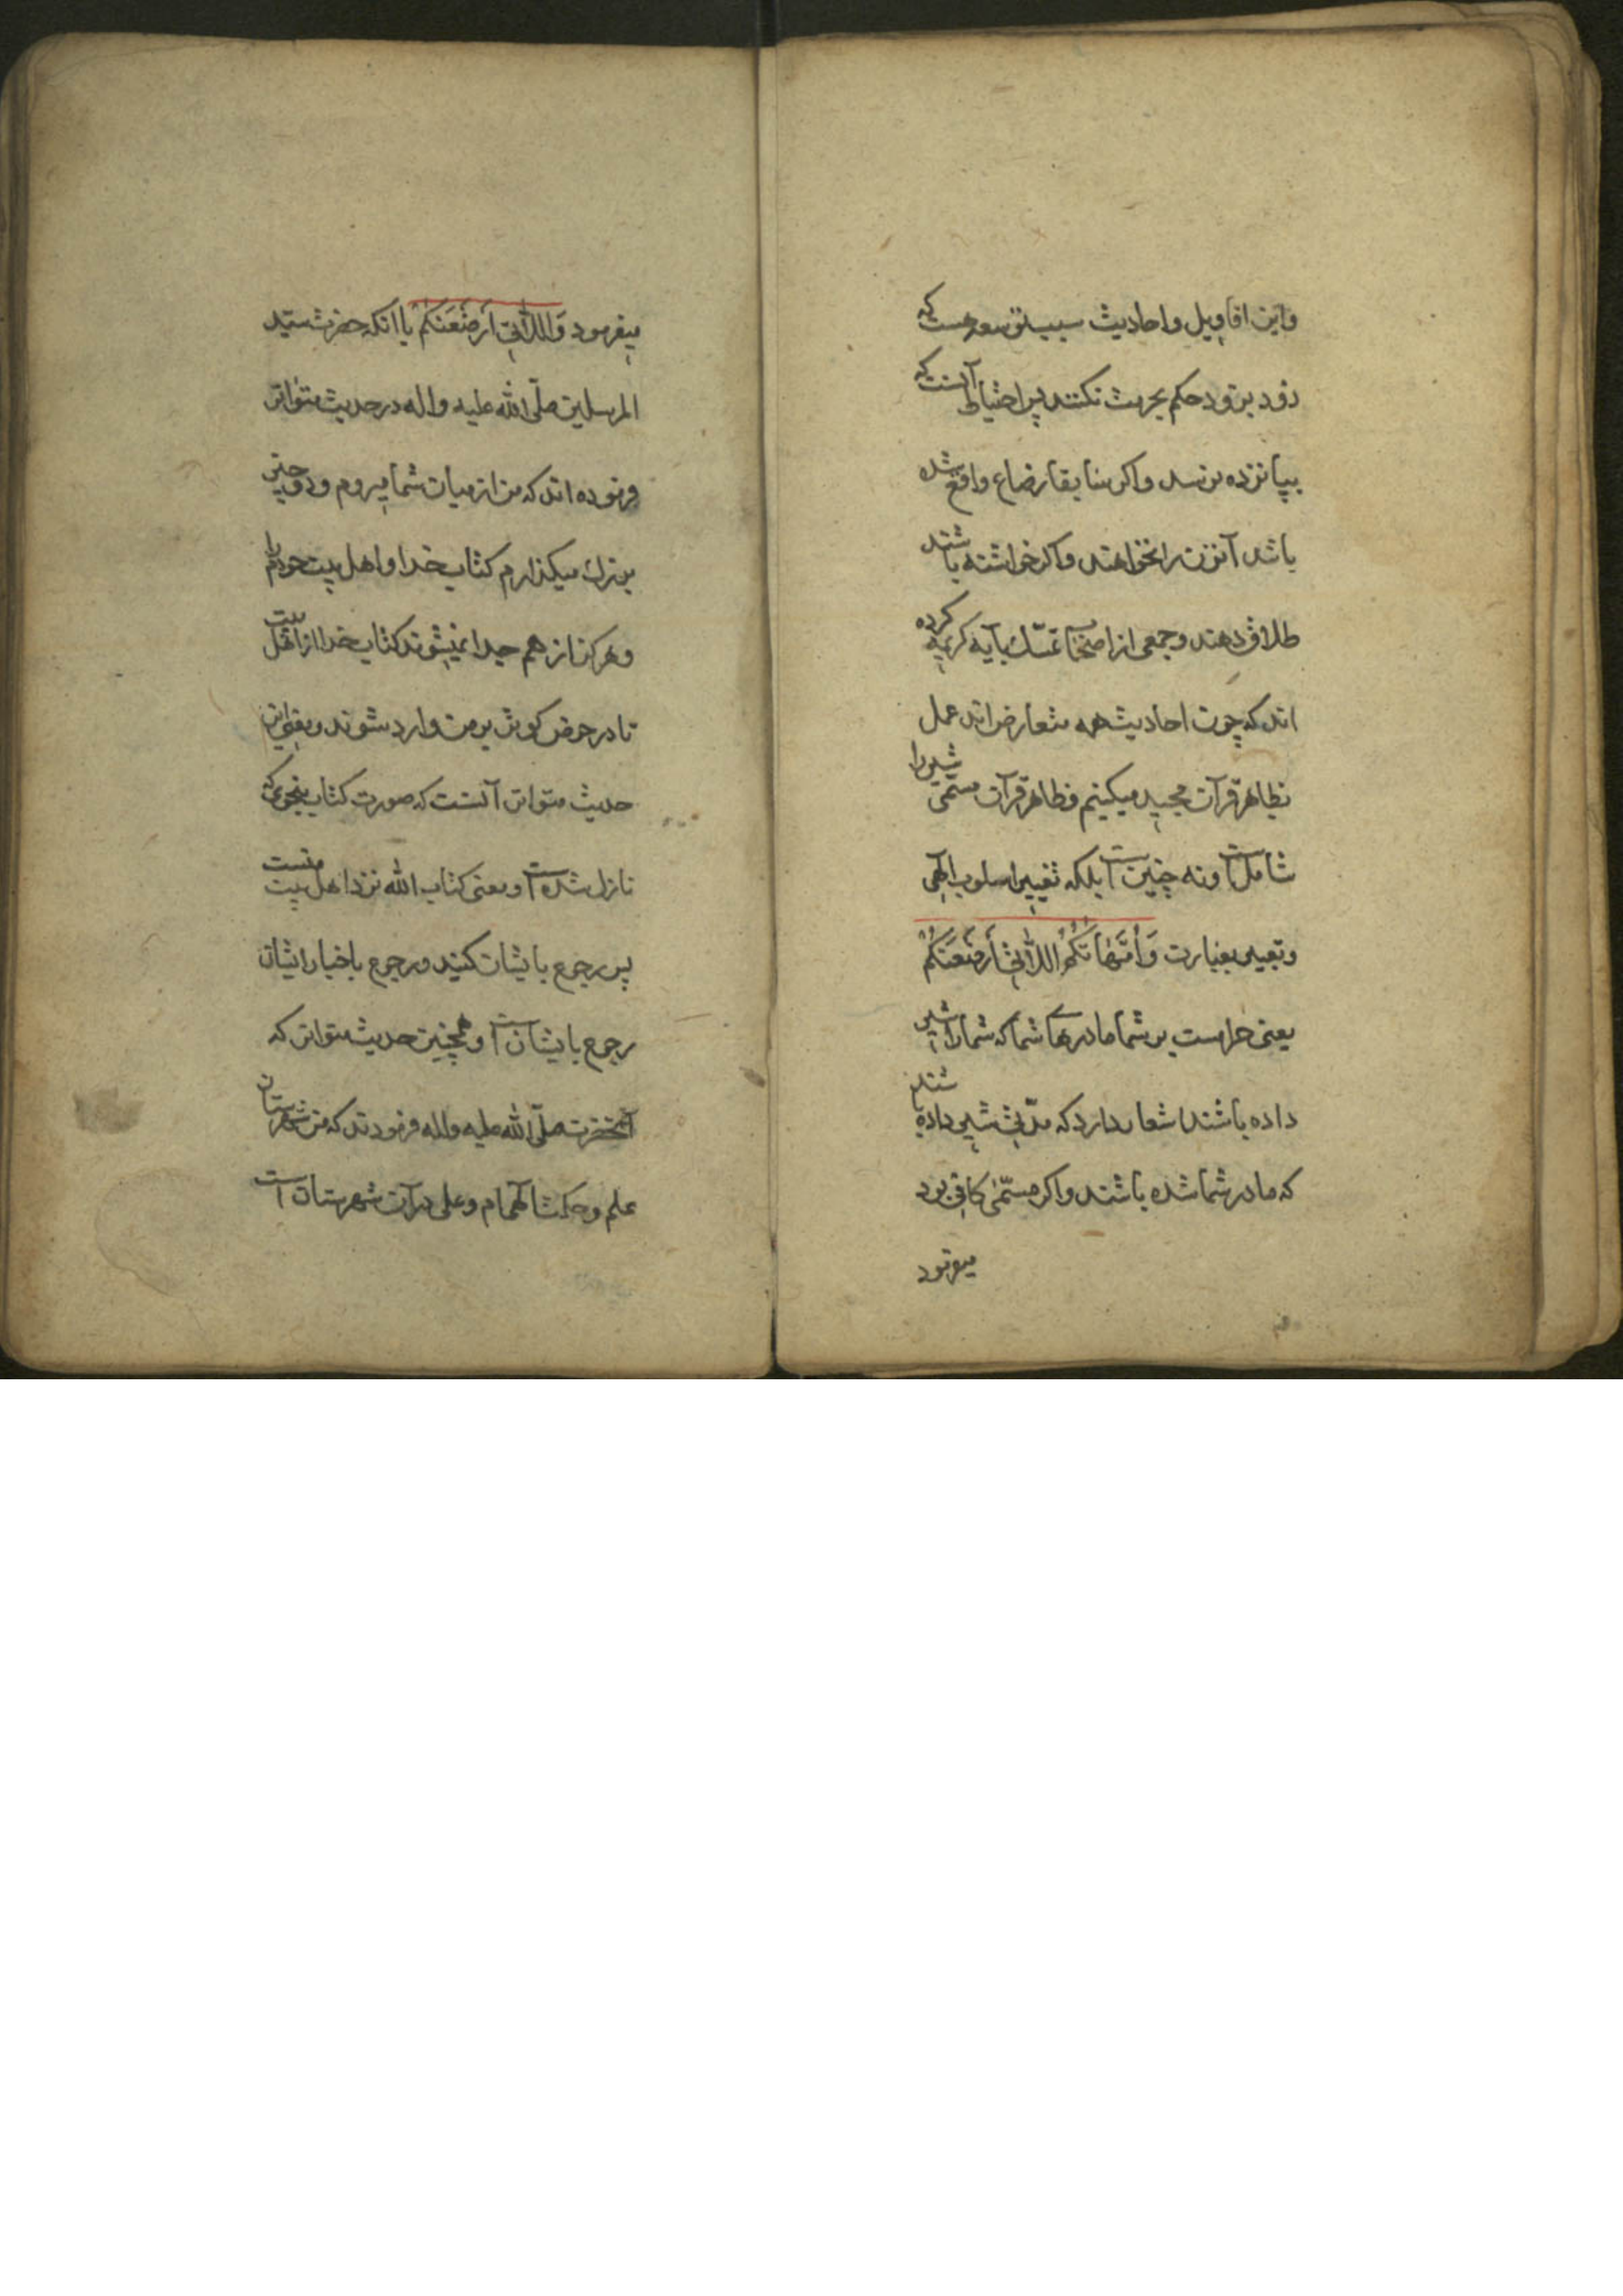 واین اقاویل واحادیث سبب که
زود بزود حکم بحرمت نکنند پس احتیاط آنست که
بپانزده نرسد واکر بنا بقا رضاع واقع شده
باشد آنزن را نخواهند واکر خواسته باشند
طلاق دهند وجمعی از اصحاب تمسّك بآیه کریمه کرده
اند که چون احادیث همه متعارض اند عمل
بظاهر قرآن مجید میکنیم وظاهر قرآن مسمّی شیر را
شاملست ونه چنین است بلکه تغییر اسلوب الهی
وتعبیر بعبارت وَاُمَّهَاتُكُمُ اللَّاتِی اَرْضَعْنَكُمْ
یعنی حرامست بر شما مادرهای شما که شما را شیر
داده باشند اشعار دارد که مدّتی شیر داده باشند
که مادر شما شده باشند واکر مسمّی کافی بود
میفرمود
میفرمود وَاللَّاتِی اَرْضَعْنَكُمْ با انکه حضرت سیّد
المرسلین صلّی الله علیه واله در حدیث متواتر
فرموده اند که من از میان شما میروم ودو چیز
بزرك میکذارم کتاب خدا واهل بیت خودم را
وهرکز از هم جدا نمیشوند کتاب خدا از اهل بیت
تا در حوض کوثر بر من وارد شوند ومعنی این
حدیث متواتر آنست که صورت کتاب بنحوی که
نازل شده است ومعنی کتاب الله نزد اهل بیت منست
پس رجوع بایشان کنید ورجوع باخبار ایشان
رجوع بایشان است وهمچنین حدیث متواتر که
آنحضرت صلّی الله علیه واله فرمودند که من شهرستان
علم وحکمت الهی ام وعلی در آن شهرستان است